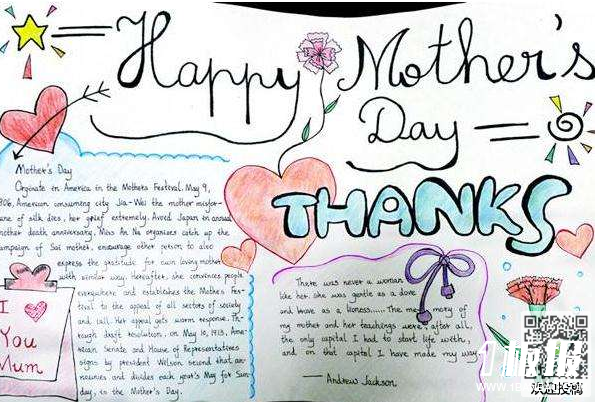 Happy Mother's
Day
THANKS
Mother's Day
Originate in America in the Mothers Festival. May 9,
906, American consuming city Jia-Wei the mother misfor-
une of silk dies, her grief extremely. Aved Japan in annual
mother death anniversary, Miss An Na organizes catch up the
ampaign of Sai mother, encourage other person to also
express the gratitude for own loving mother
with similar way. Hereafter, she convinces people
everywhere and establishes the Mothers Fes-
tival to the appeal of all sectors of society
and call. Her appeal gets warm response. Th-
rough draft resolution, on May 10, 1913, Ame-
rican Senate and House of Representatives
signs by president Welson second that an-
nounies and divides each year's May for Sun-
day, is the Mother's Day.
I
You
Mum
There was never a woman
like her. She was gentle as a dove
and brave as a lioness...... The memory of
my mother and her teachings were, after all,
the only capital I had to start life with,
and on that capital I have made my way
— Andrew Jackson
欢迎投稿